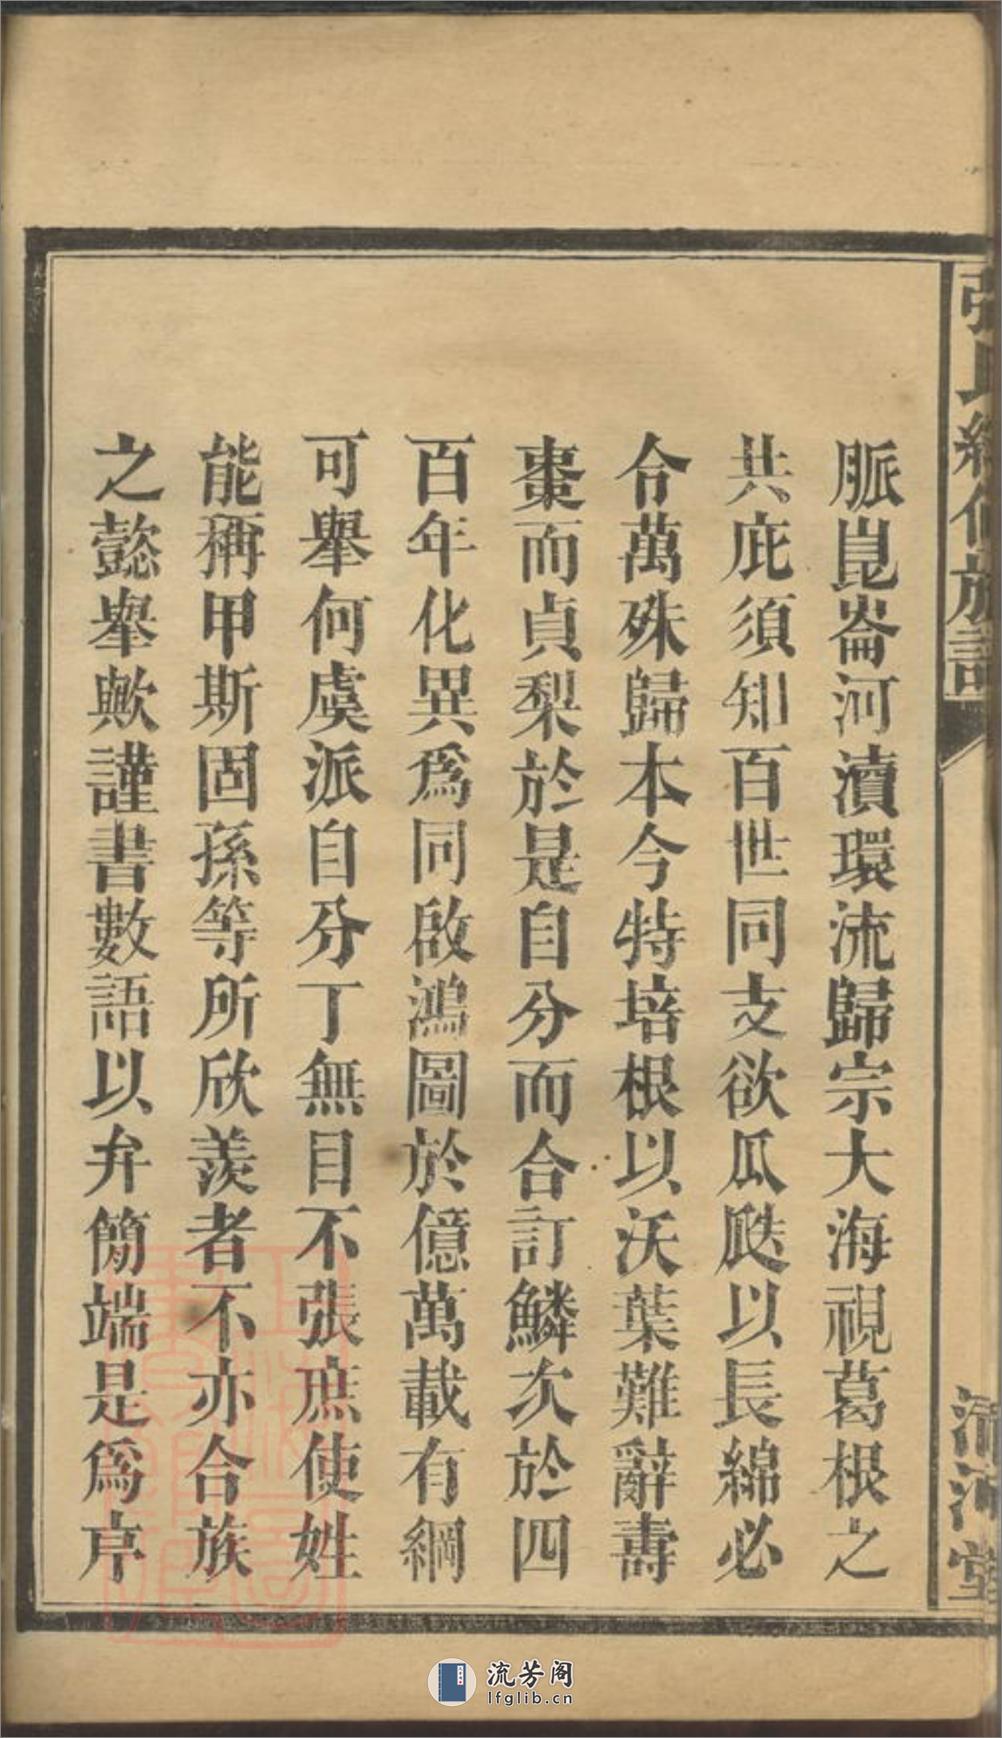 張氏續修族譜
清河堂
脈崑崙河瀆環流歸宗大海視葛根之
共庇須知百世同支欲瓜瓞以長綿必
合萬殊歸本今特培根以沃葉難辭壽
棗而貞梨於是自分而合訂鱗次於四
百年化異爲同啟鴻圖於億萬載有綱
可舉何虞派自分丁無目不張庶使姓
能稱甲斯固孫等所欣羡者不亦合族
之懿舉歟謹書數語以弁簡端是爲序
流芳阁
lfglib.cn